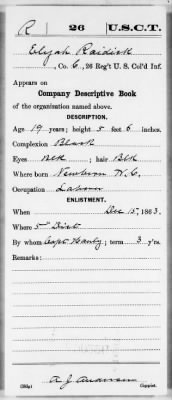 R 26 U.S.C.T.
Elijah Raidick
, Co. C, 26 Reg't U. S. Col'd Inf.
Appears on
Company Descriptive Book
of the organization named above.
DESCRIPTION.
Age 19 years; height 5 feet 6 inches.
Complexion Black
Eyes Blk ; hair Blk
Where born Newbern N.C.
Occupation Laborer
ENLISTMENT.
When Dec 15, 1863.
Where 5" Dist.
By whom Capt. ; term 3 y'rs.
Remarks:
Copyist.